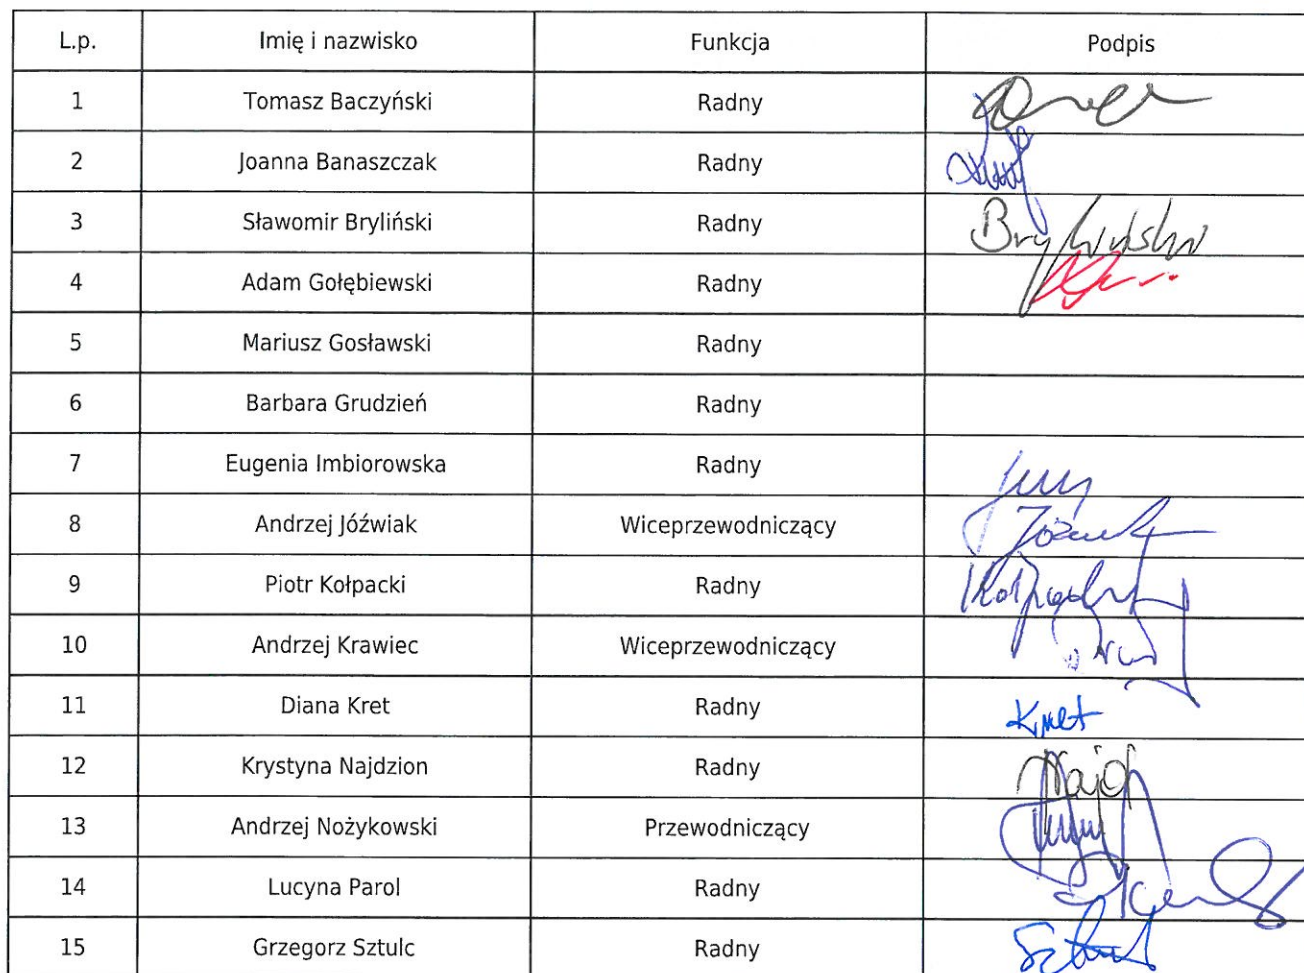 L.p. Imię i nazwisko Funkcja Podpis
1 Tomasz Baczyński Radny
2 Joanna Banaszczak Radny
3 Sławomir Bryliński Radny Bryliński
4 Adam Gołębiewski Radny
5 Mariusz Gosławski Radny
6 Barbara Grudzień Radny
7 Eugenia Imbiorowska Radny
8 Andrzej Jóźwiak Wiceprzewodniczący
9 Piotr Kołpacki Radny
10 Andrzej Krawiec Wiceprzewodniczący
11 Diana Kret Radny Kret
12 Krystyna Najdzion Radny
13 Andrzej Nożykowski Przewodniczący
14 Lucyna Parol Radny
15 Grzegorz Sztulc Radny